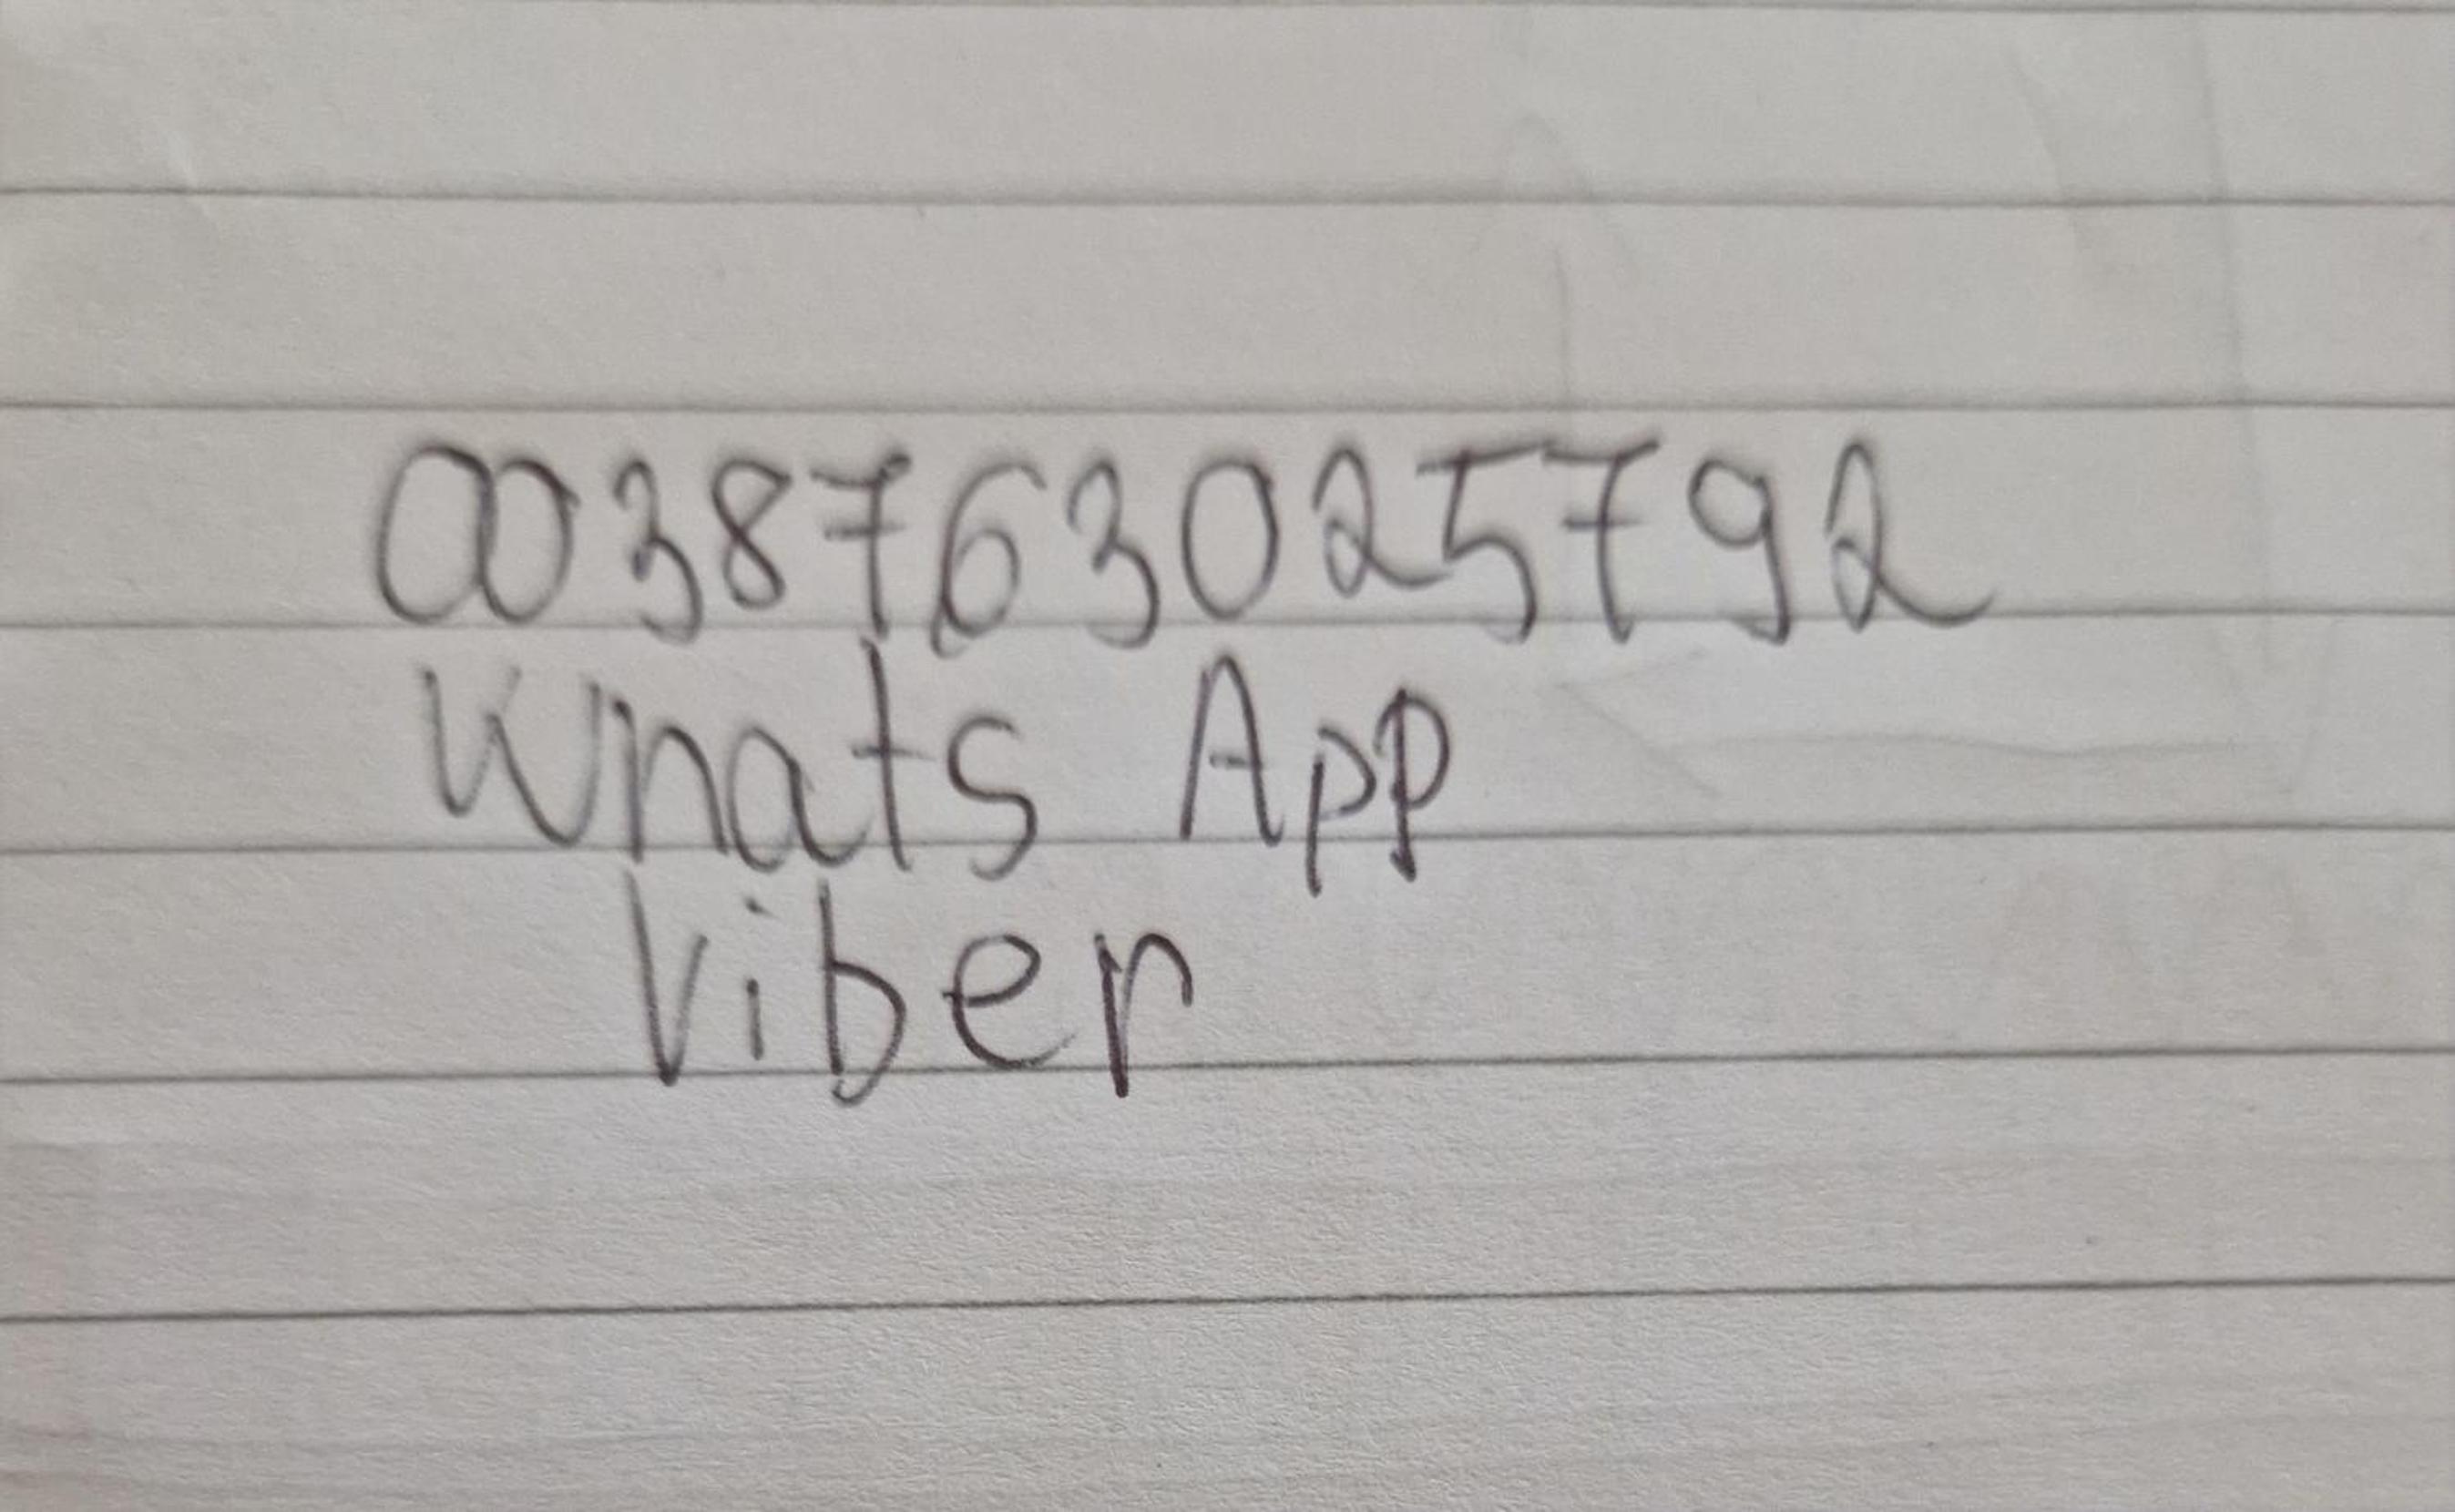 0038763025792
Whats App
Viber